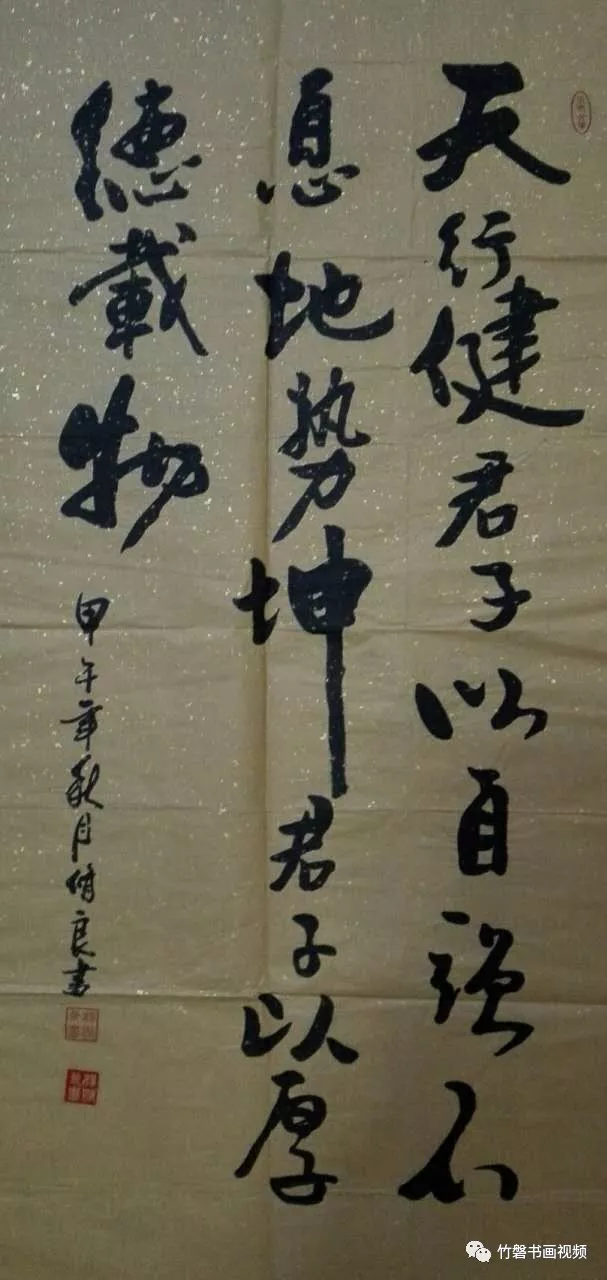 天行健君子以自強不
息地勢坤君子以厚
德載物
甲午年秋月脩良書
竹磐书画视频